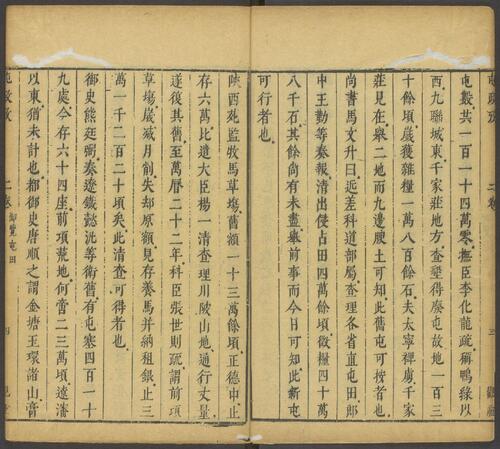 屯穀共一百一十四萬零撫臣李化龍疏稱鴨綠以
西九聯城東千家莊地方查墾得廢屯故地一百三
十餘頃歲獲雜糧一萬八百餘石夫太寧禪虜千家
莊見在舉二地而九邊腴土可知此舊屯可按者也
尚書馬文升曰近差科道部屬查理各省直屯田郎
中王勤等奏報清出侵占田四萬餘頃徵糧四十萬
八千石其餘尚有未盡舉前事而今日可知此新屯
可行者也
陝西苑監牧馬草塲舊額一十三萬餘頃正德中止
存六萬比遣大臣楊一清查理川陂山地通行丈量
遂復其舊至萬曆二十二年科臣張世則疏謂前項
草塲歲減月削失却原額見存養馬并納租銀止三
萬一千二百二十頃矣此清查可得者也
御史熊廷弼奏遼鐵懿沈等衛舊有屯寨四百一十
九處今存六十四座前項荒地何啻二三萬頃遼瀋
以東猶未計也都御史唐順之謂金塘玉環諸山膏
二卷
御覽屯田
四